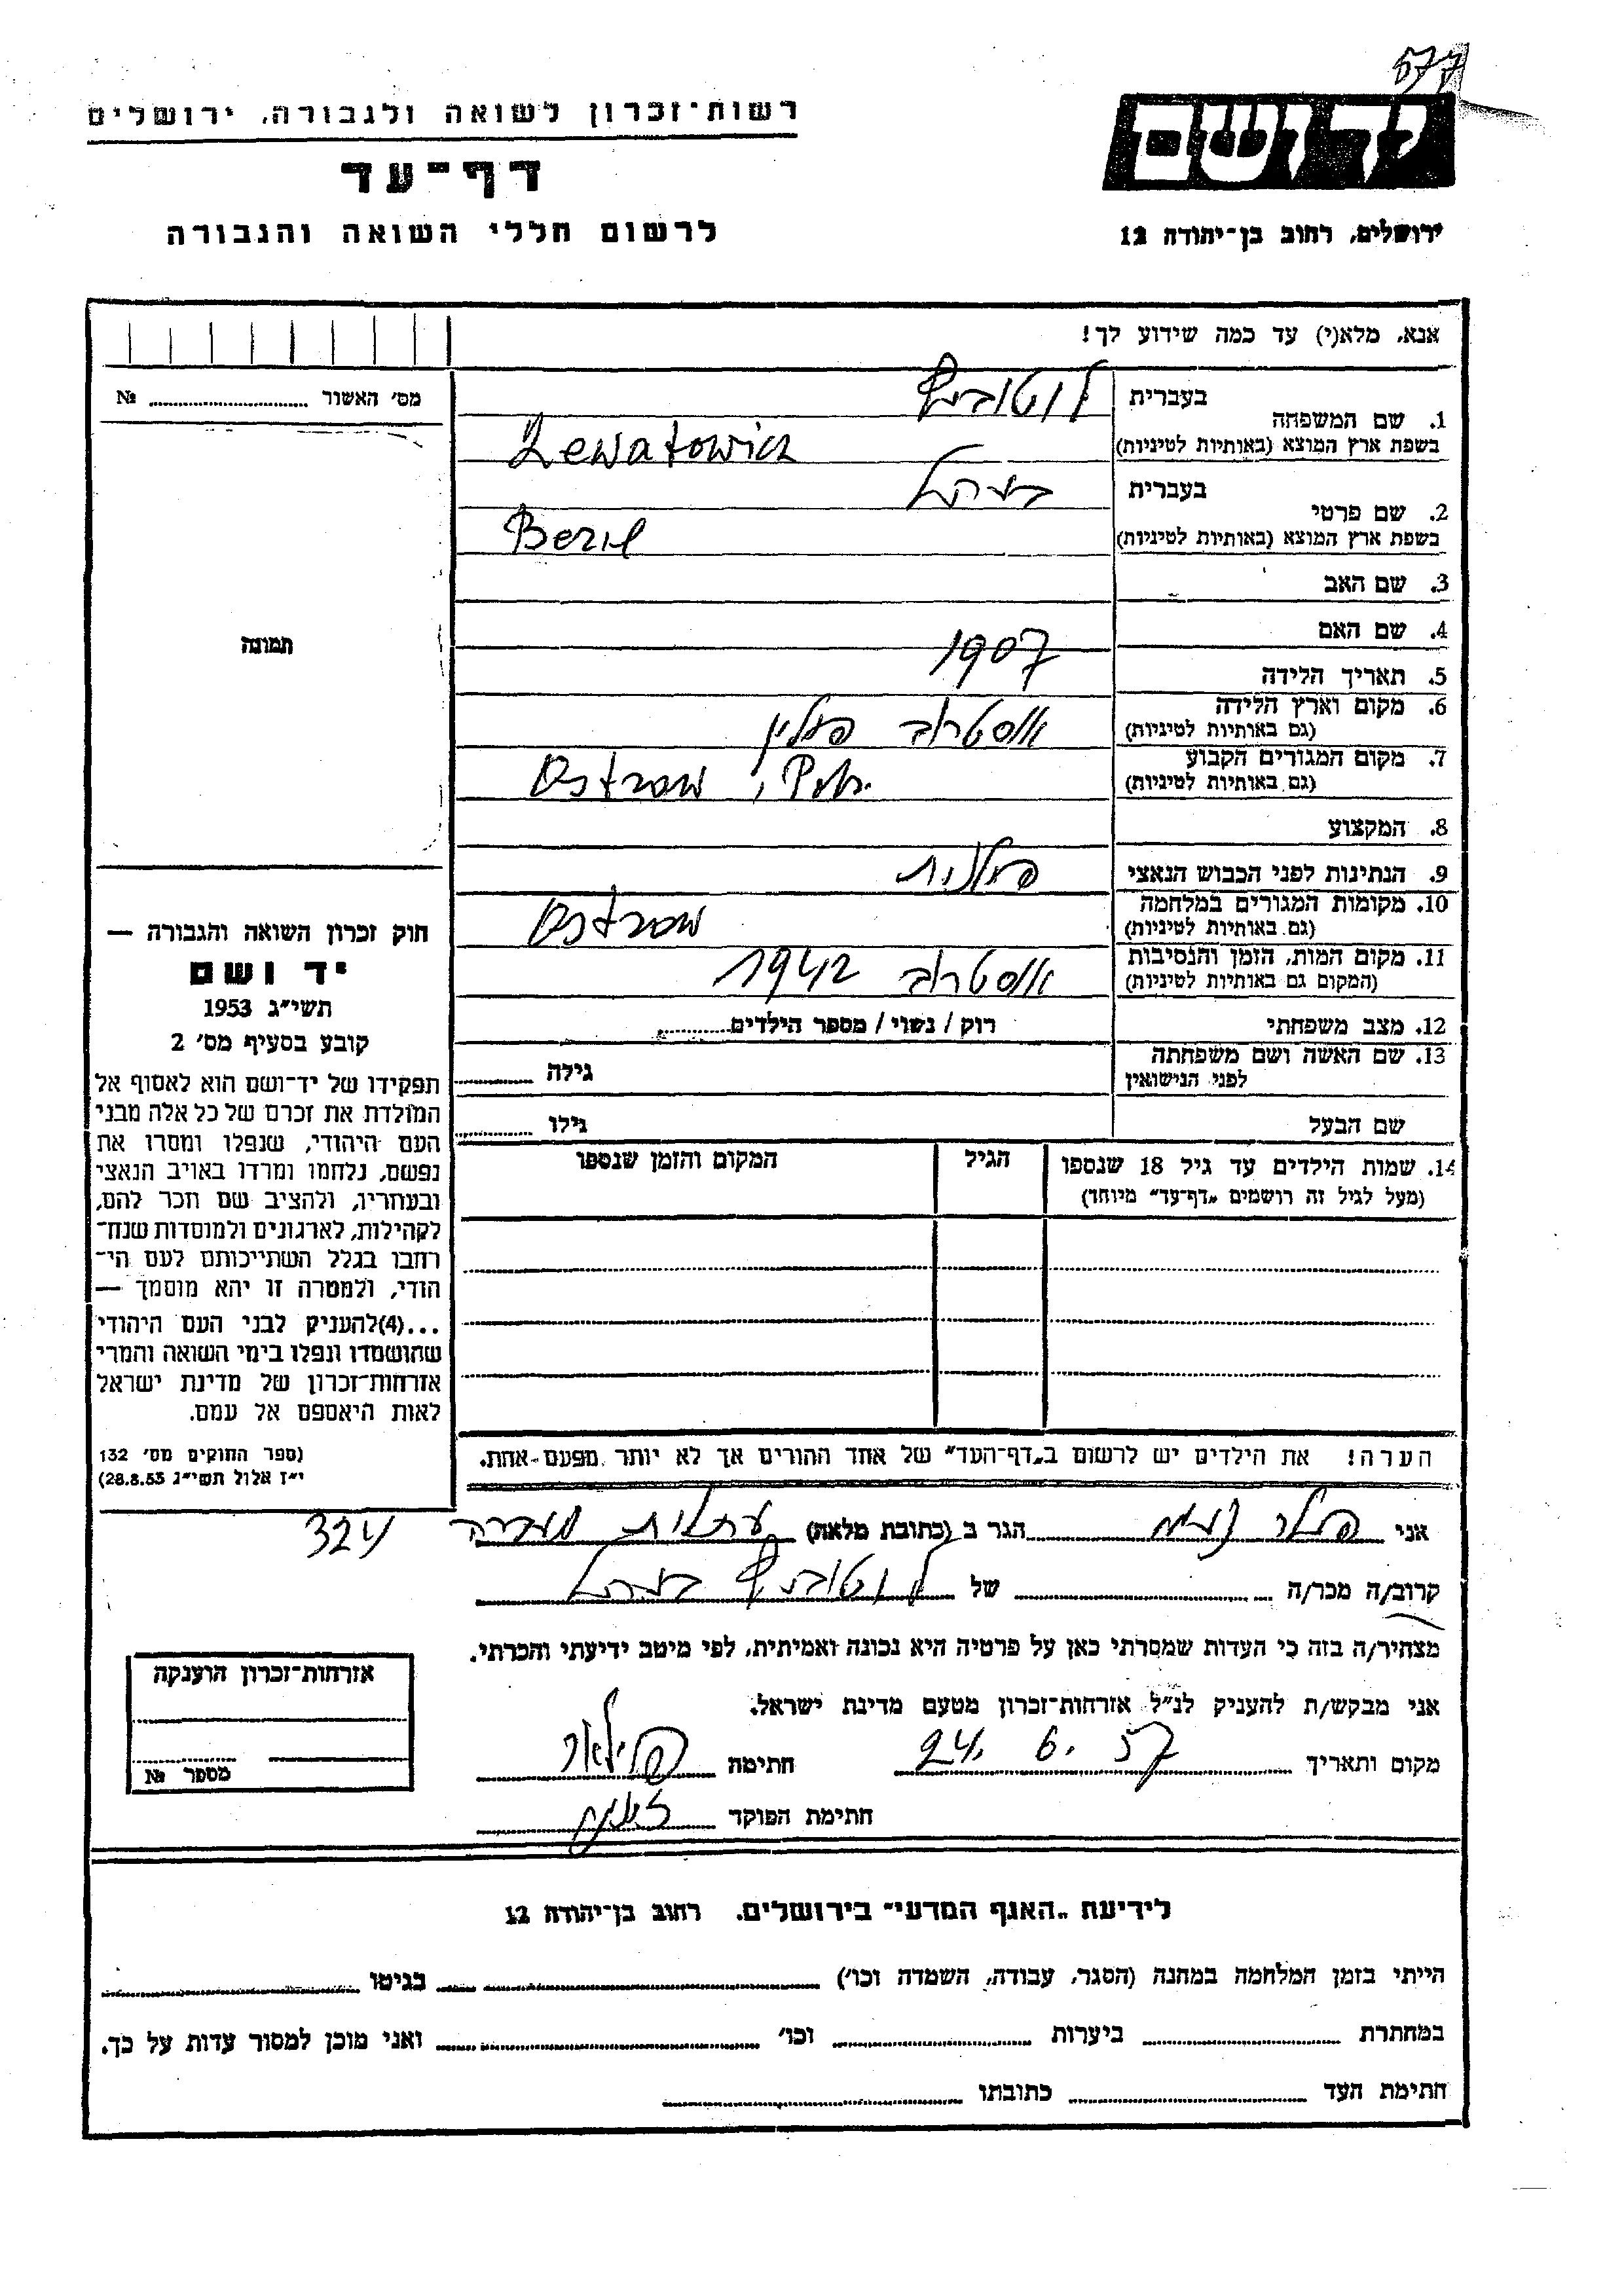 577
רשות־זכרון לשואה ולגבורה, ירושלים
דף־עד
לרשום חללי השואה והגבורה
יד ושם
ירושלים, רחוב בן־יהודה 12
אנא, מלא(י) עד כמה שידוע לך!
מס׳ האשור № ........
תמונה
1. שם המשפחה
בעברית לוטוביץ
בשפת ארץ המוצא (באותיות לטיניות) Lewatowicz
2. שם פרטי
בעברית
בשפת ארץ המוצא (באותיות לטיניות) Beril
3. שם האב
4. שם האם
5. תאריך הלידה 1907
6. מקום וארץ הלידה אוסטרוב פולין
(גם באותיות לטיניות)
7. מקום המגורים הקבוע Ostrow, Pol.
(גם באותיות לטיניות)
8. המקצוע
9. הנתינות לפני הכבוש הנאצי פולנית
10. מקומות המגורים במלחמה Ostrow
(גם באותיות לטיניות)
11. מקום המות, הזמן והנסיבות אוסטרוב 1942
(המקום גם באותיות לטיניות)
12. מצב משפחתי רוק / נשוי / מספר הילדים........
13. שם האשה ושם משפחתה גילה ........
לפני הנישואין
שם הבעל גילו ........
14. שמות הילדים עד גיל 18 שנספו הגיל המקום והזמן שנספו
(מעל לגיל זה רושמים „דף־עד” מיוחד)
הערה! את הילדים יש לרשום ב„דף־העד” של אחד ההורים אך לא יותר מפעם אחת.
חוק זכרון השואה והגבורה —
יד ושם
תשי״ג 1953
קובע בסעיף מס׳ 2
תפקידו של יד־ושם הוא לאסוף אל
המולדת את זכרם של כל אלה מבני
העם היהודי, שנפלו ומסרו את
נפשם, נלחמו ומרדו באויב הנאצי
ובעוזריו, ולהציב שם וזכר להם,
לקהילות, לארגונים ולמוסדות שנח־
רחבו בגלל השתייכותם לעם הי־
הודי, ולמטרה זו יהא מוסמך —
...(4)להעניק לבני העם היהודי
שהושמדו ונפלו בימי השואה והמרי
אזרחות־זכרון של מדינת ישראל
לאות היאספם אל עמם.
(ספר החוקים מס׳ 132
י״ז אלול תשי״ג 28.8.53)
אני הגר ב (כתובת מלאה) עתלית 324
קרוב/ה מכר/ה של לוטוביץ
מצהיר/ה בזה כי העדות שמסרתי כאן על פרטיה היא נכונה ואמיתית, לפי מיטב ידיעתי והכרתי.
אני מבקש/ת להעניק לנ״ל אזרחות־זכרון מטעם מדינת ישראל.
מקום ותאריך 24. 6. 57 חתימה
חתימת הפוקד
אזרחות־זכרון הוענקה
מספר №
לידיעת „האגף המדעי” בירושלים, רחוב בן־יהודה 12
הייתי בזמן המלחמה במחנה (הסגר, עבודה, השמדה וכו׳) ........ בגיטו ........
במחתרת ........ ביערות ........ וכו׳ ........ ואני מוכן למסור עדות על כך.
חתימת העד ........ כתובתו ........